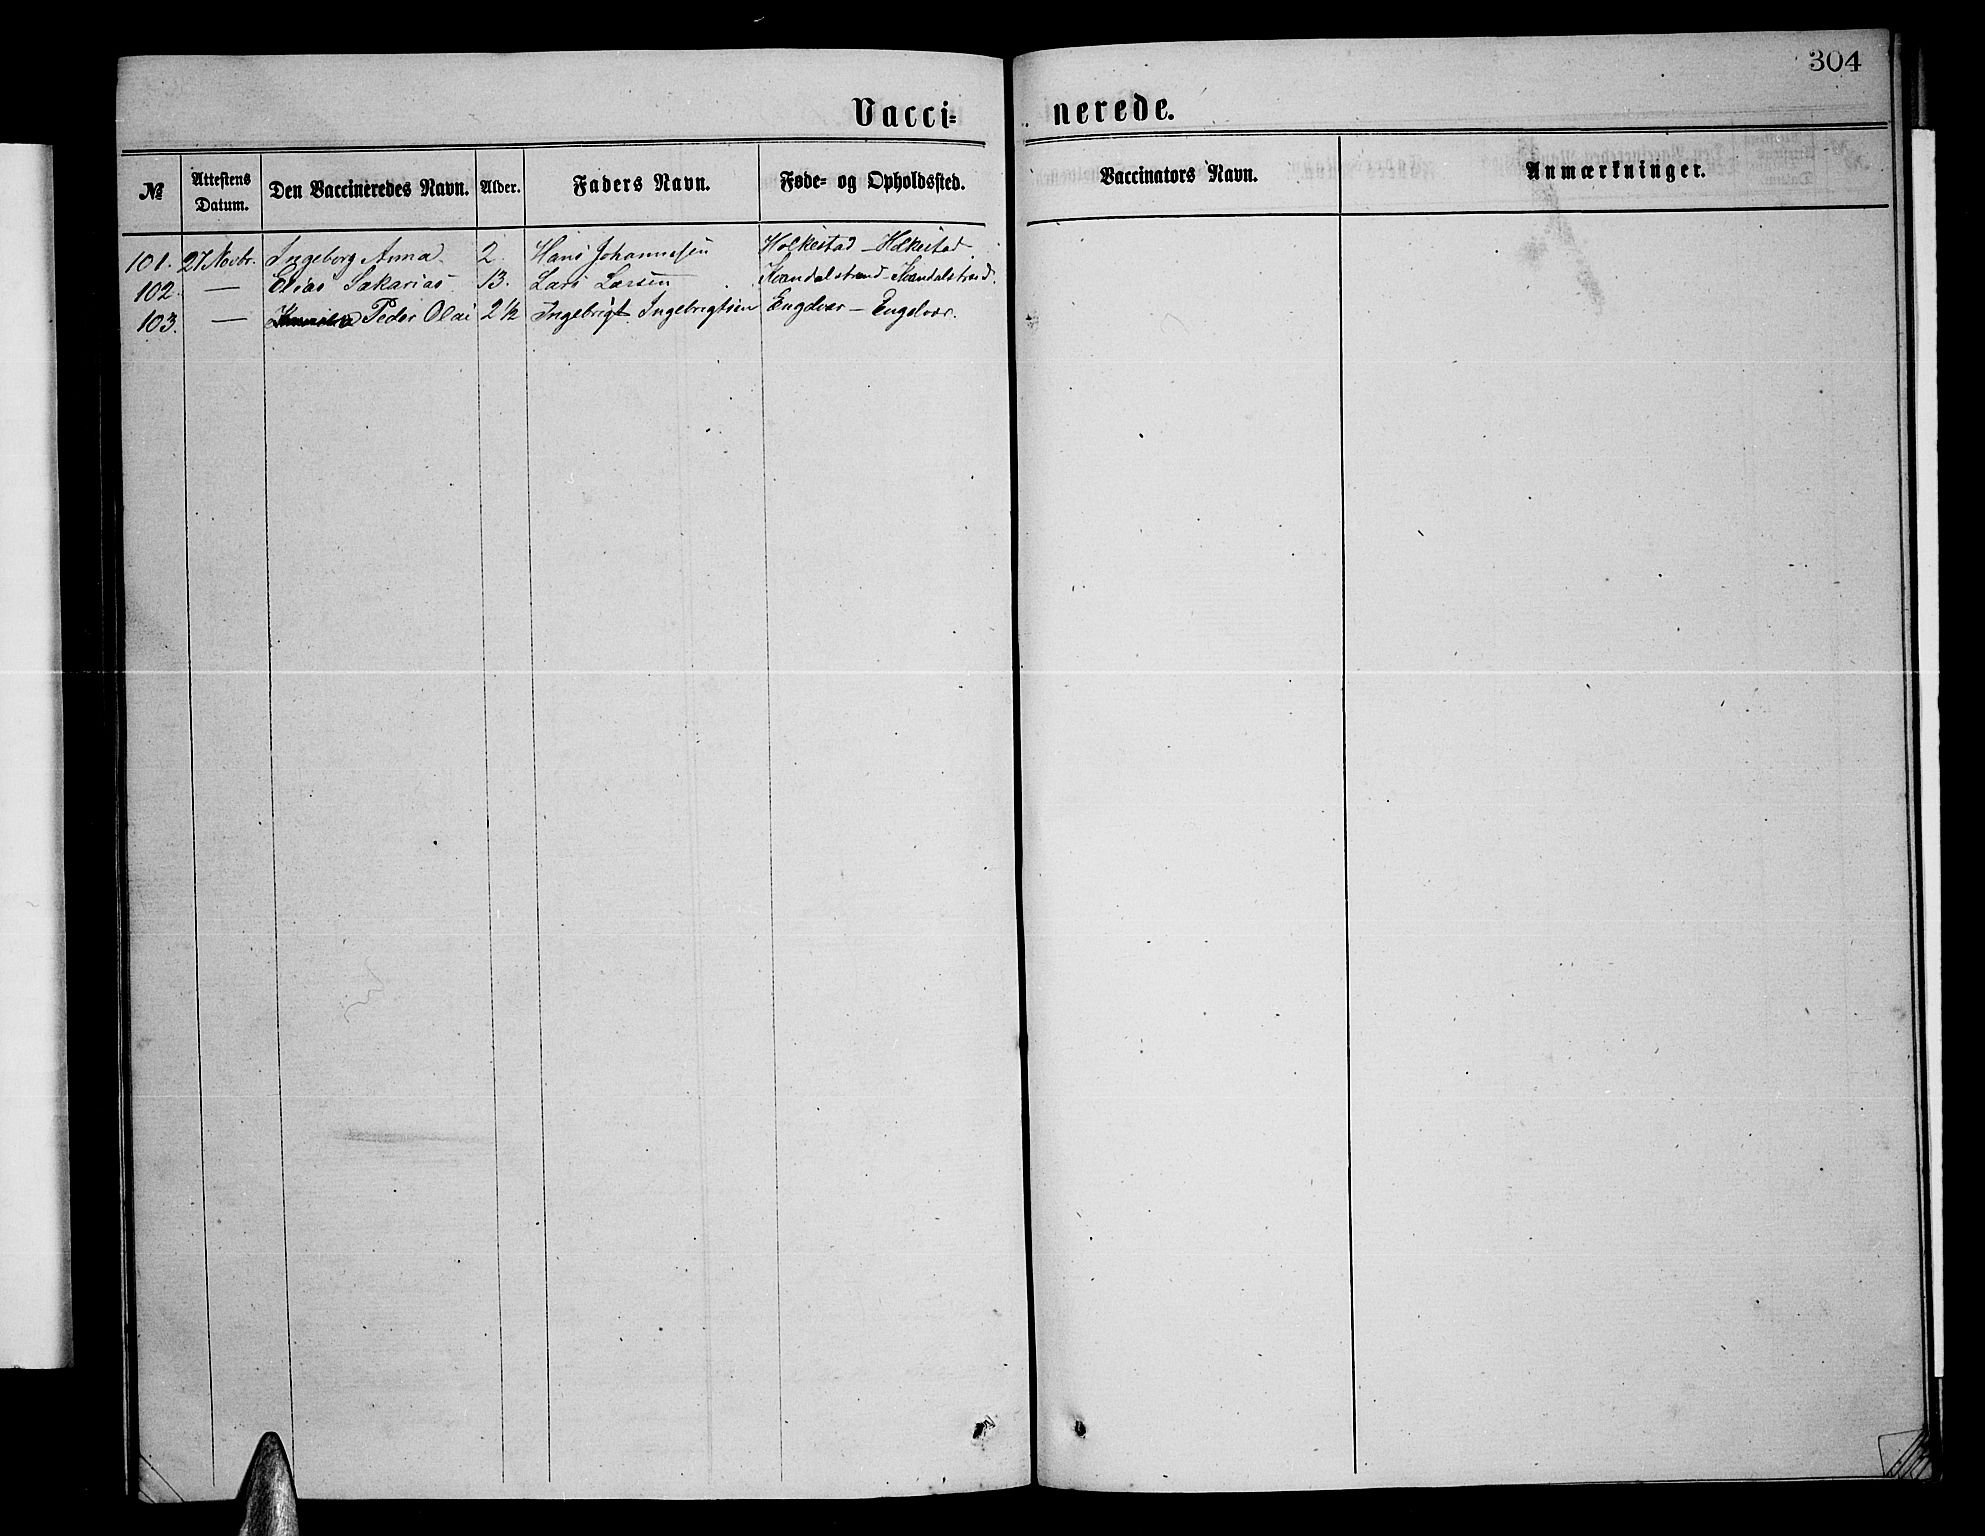 304
Vacci= nerede.
№ Attestens Datum. Den Vaccineredes Navn. Alder. Faders Navn. Føde- og Opholdssted. Vaccinators Navn. Anmærkninger.
101. 27 Novbr. Ingeborg Anna 2. Hans Johannesen Holkestad - Holkestad
102. — Elias Sakarias 13. Lars Larsen
103. — Peder Olai 2½ Ingebrigt Ingebrigtsen Engelvær - Engelvær.